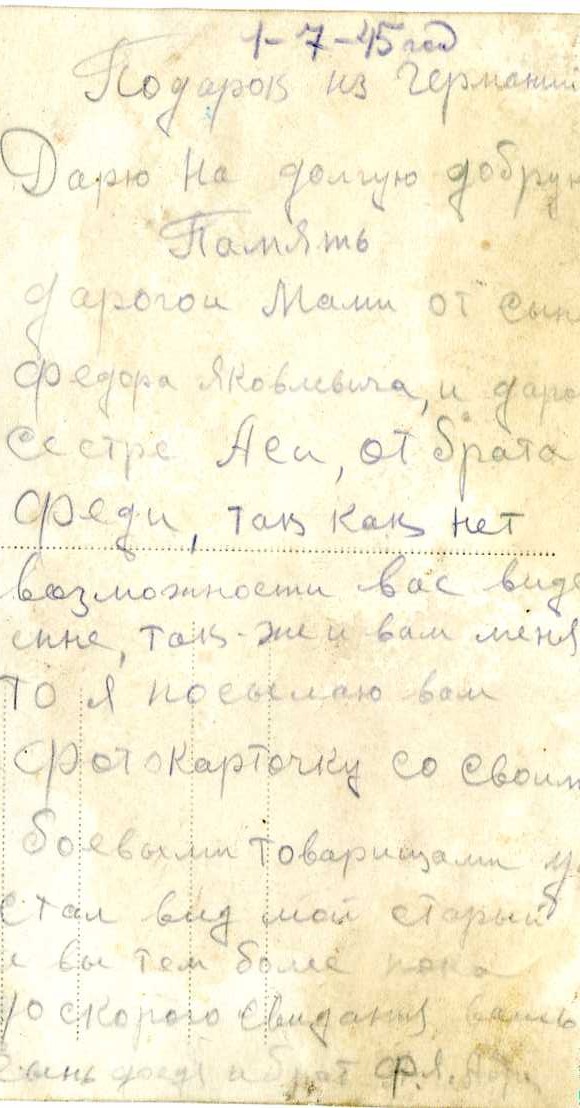 1-7-45 год
Подарок из Германии
Дарю на долгую добрую
Память
дарогои Мами от сын
Федора Яковлевича, и даро
сестре Аси, от брата
Феди, так как нет
возможности вас виде
мне, так-же и вам меня
то я посылаю вам
Фотокарточку со своим
боевыми товарищами у
стал вид мой старый
и вы тем боле пока
до скорого свидания ваш
сынь Федя и брат Ф.Я.